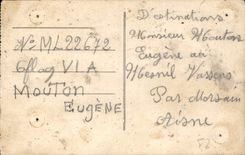 No ML22672
6flag VI A
MOUTON
EUGÈNE
Destinations
Monsieur Mouton
Eugène au
Mesnil Vassens
Par Morsain
Aisne